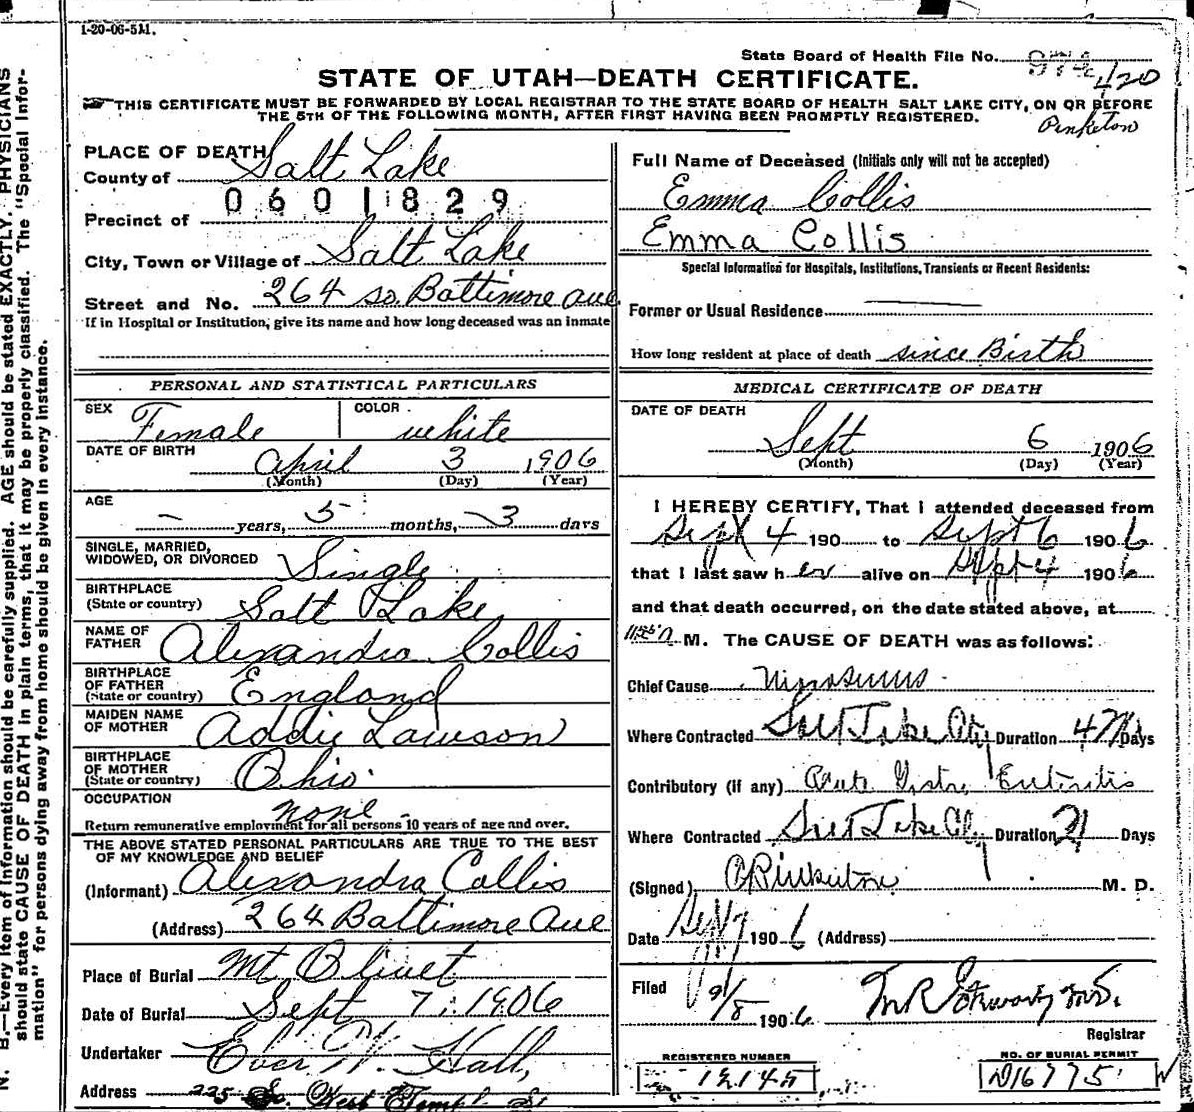 1-20-06-5M.
State Board of Health File No.
420
STATE OF UTAH—DEATH CERTIFICATE.
THIS CERTIFICATE MUST BE FORWARDED BY LOCAL REGISTRAR TO THE STATE BOARD OF HEALTH SALT LAKE CITY, ON OR BEFORE
THE 5TH OF THE FOLLOWING MONTH, AFTER FIRST HAVING BEEN PROMPTLY REGISTERED.
Pinkerton
PLACE OF DEATH
County of Salt Lake
0601829
Precinct of
City, Town or Village of Salt Lake
Street and No. 264 so. Baltimore ave
If in Hospital or Institution, give its name and how long deceased was an inmate
PERSONAL AND STATISTICAL PARTICULARS
SEX Female COLOR white
DATE OF BIRTH April 3 1906
(Month) (Day) (Year)
AGE
– years, 5 months, 3 days
SINGLE, MARRIED,
WIDOWED, OR DIVORCED Single
BIRTHPLACE
(State or country) Salt Lake
NAME OF
FATHER Alexandra Collis
BIRTHPLACE
OF FATHER
(State or country) England
MAIDEN NAME
OF MOTHER Addie Lawson
BIRTHPLACE
OF MOTHER
(State or country) Ohio
OCCUPATION none
Return remunerative employment for all persons 10 years of age and over.
THE ABOVE STATED PERSONAL PARTICULARS ARE TRUE TO THE BEST
OF MY KNOWLEDGE AND BELIEF
(Informant) Alexandra Collis
(Address) 264 Baltimore Ave
Place of Burial Mt Olivet
Date of Burial Sept 7, 1906
Undertaker Eber W. Hall,
Address 225 So. West Temple St
Full Name of Deceased (Initials only will not be accepted)
Emma Collis
Emma Collis
Special Information for Hospitals, Institutions, Transients or Recent Residents:
Former or Usual Residence
How long resident at place of death since Birth
MEDICAL CERTIFICATE OF DEATH
DATE OF DEATH
Sept 6 1906
(Month) (Day) (Year)
I HEREBY CERTIFY, That I attended deceased from
Sept 4 190 to Sept 6 1906
that I last saw her alive on Sept 4 1906
and that death occurred, on the date stated above, at
M. The CAUSE OF DEATH was as follows:
Chief Cause
Where Contracted Salt Lake City Duration Days
Contributory (if any) Enteritis
Where Contracted Salt Lake City Duration 21 Days
(Signed) Pinkerton M. D.
Date Sept 7 1906 (Address)
Filed 9/8 1906 M.D.
Registrar
REGISTERED NUMBER
12145
NO. OF BURIAL PERMIT
D16775
N. B.—Every item of information should be carefully supplied. AGE should be stated EXACTLY. PHYSICIANS
should state CAUSE OF DEATH in plain terms, that it may be properly classified. The "Special Infor-
mation" for persons dying away from home should be given in every instance.